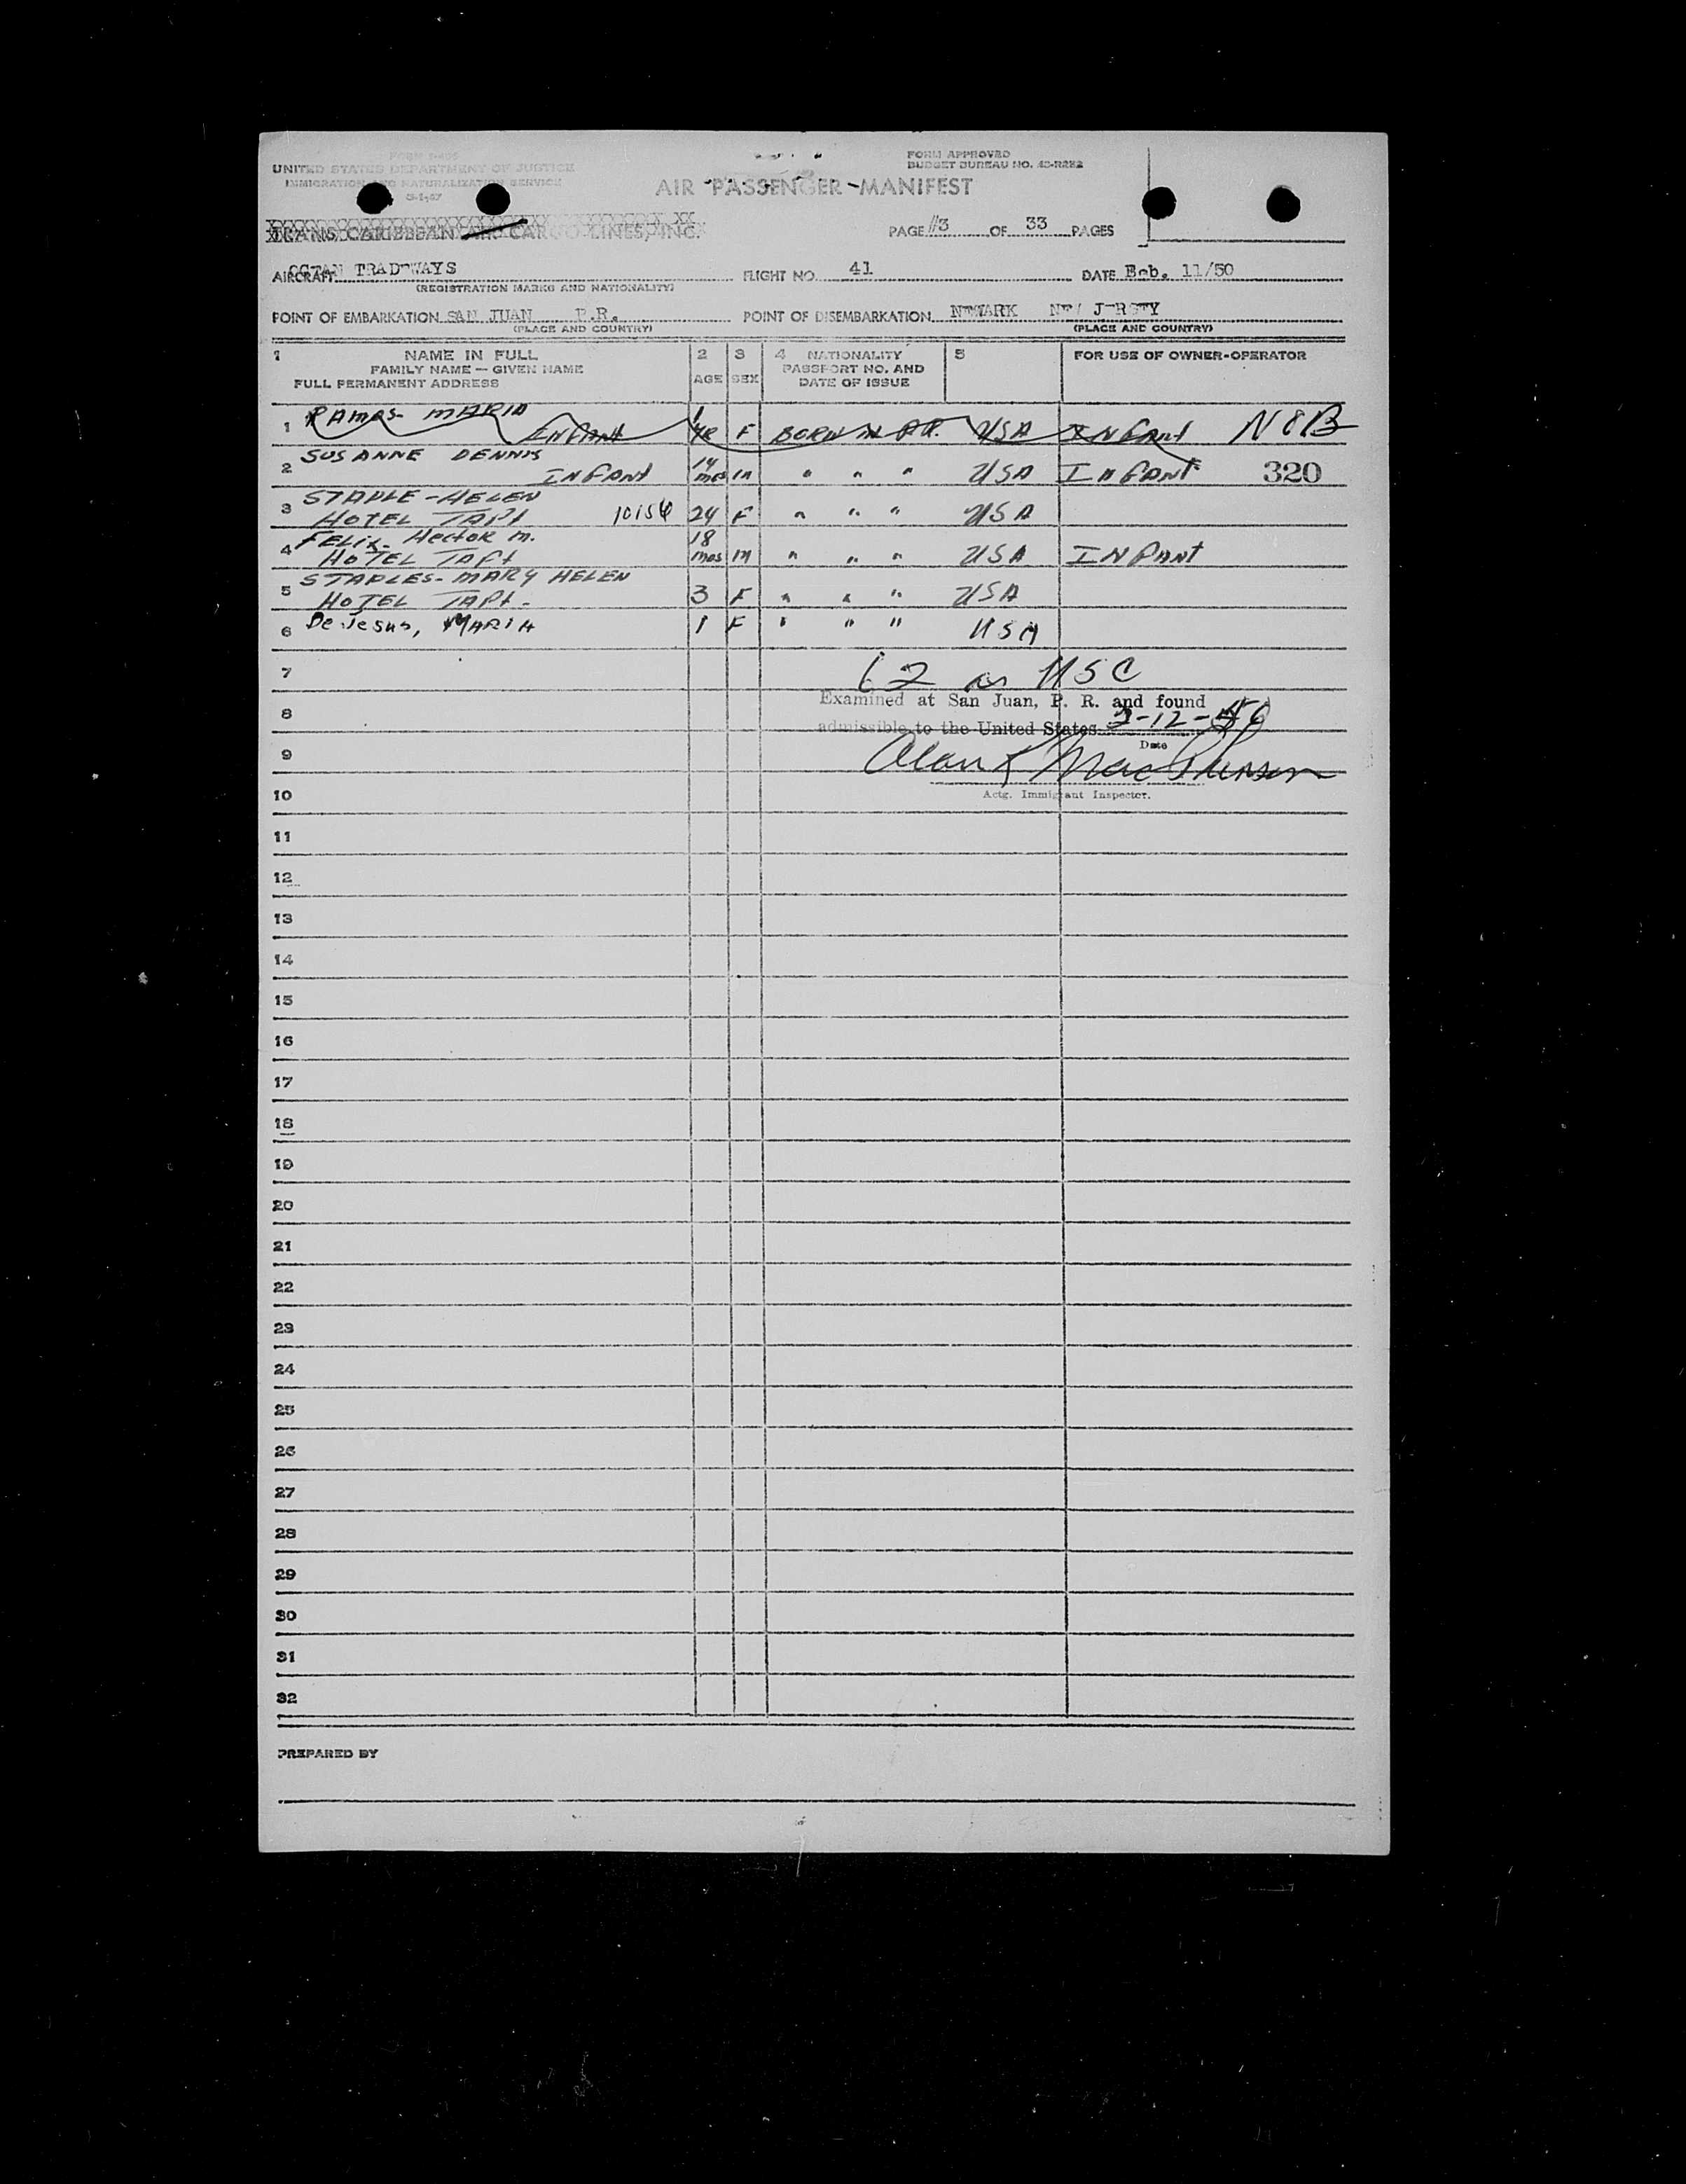 FORM I-466
UNITED STATES DEPARTMENT OF JUSTICE
IMMIGRATION AND NATURALIZATION SERVICE
FORM APPROVED
BUDGET BUREAU NO. 43-R282
AIR PASSENGER MANIFEST
TRANS CARIBBEAN AIR CARGO LINES, INC.
PAGE #3 OF 33 PAGES
AIRCRAFT OCEAN TRADEWAYS FLIGHT NO. 41 DATE Feb. 11/50
(REGISTRATION MARKS AND NATIONALITY)
POINT OF EMBARKATION SAN JUAN P.R. POINT OF DISEMBARKATION NEWARK NEW JERSEY
(PLACE AND COUNTRY) (PLACE AND COUNTRY)
1 NAME IN FULL 2 3 4 NATIONALITY 5 FOR USE OF OWNER-OPERATOR
FAMILY NAME — GIVEN NAME PASSPORT NO. AND
FULL PERMANENT ADDRESS AGE SEX DATE OF ISSUE
RAMOS- MARIA 1
1 INFANT YR F BORN IN P.R. USA INFANT N8B
SUSANNE DENNIS 14
2 INFANT mos m " " " USA INFANT 320
STAPLE - HELEN
3 HOTEL TAFT 10154 24 F " " " USA
FELIX- Hector m. 18
4 HOTEL TAFT mos m " " " USA INFANT
STAPLES- MARY HELEN
5 HOTEL TAFT. 3 F " " " USA
6 De Jesus, MARIA 1 F " " " USA
7 62 as USC
Examined at San Juan, P. R. and found
8
admissible to the United States 2-12-50
Date
9 Alan K MacPherson
10 Actg. Immigrant Inspector.
11
12
13
14
15
16
17
18
19
20
21
22
23
24
25
26
27
28
29
30
31
32
PREPARED BY